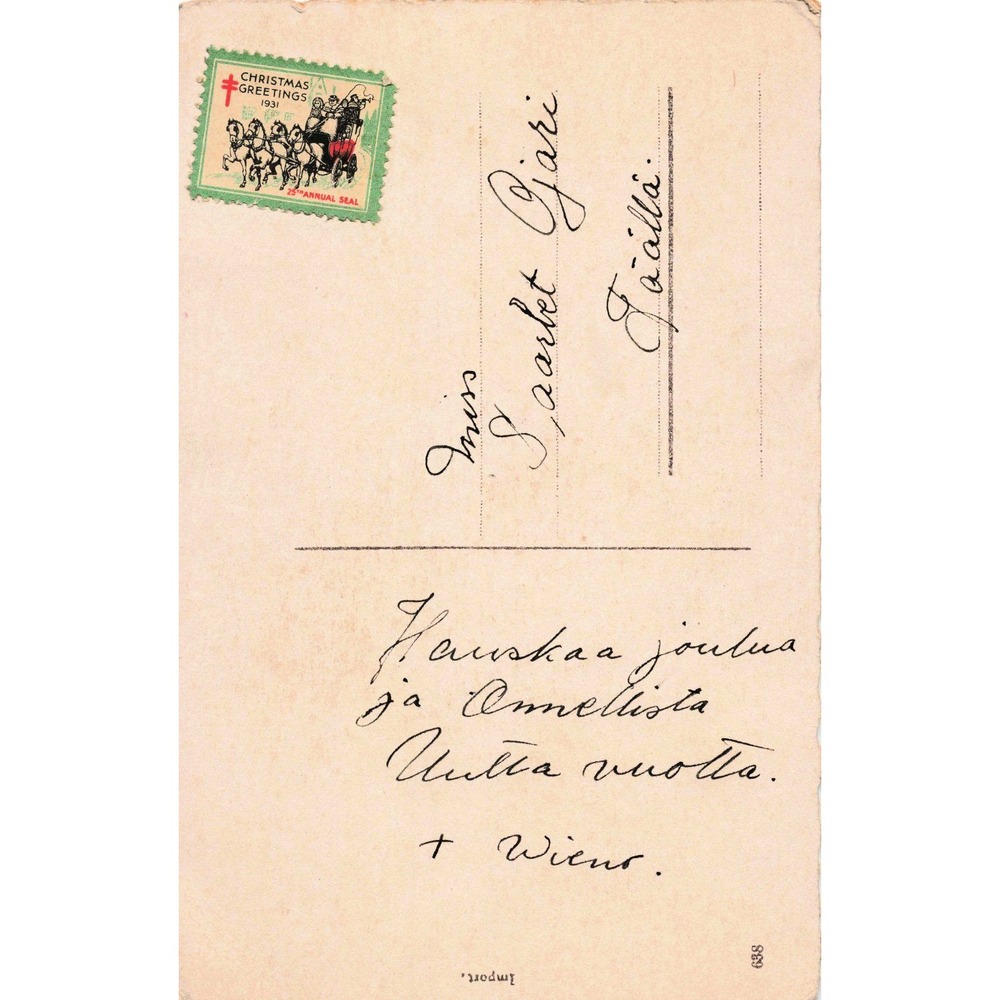 CHRISTMAS
GREETINGS
1931
25TH ANNUAL SEAL
Miss
Saarbet Ojari
Täällä.
Hauskaa joulua
ja Onnellista
Uutta vuotta.
+ Wieno.
Import.
638